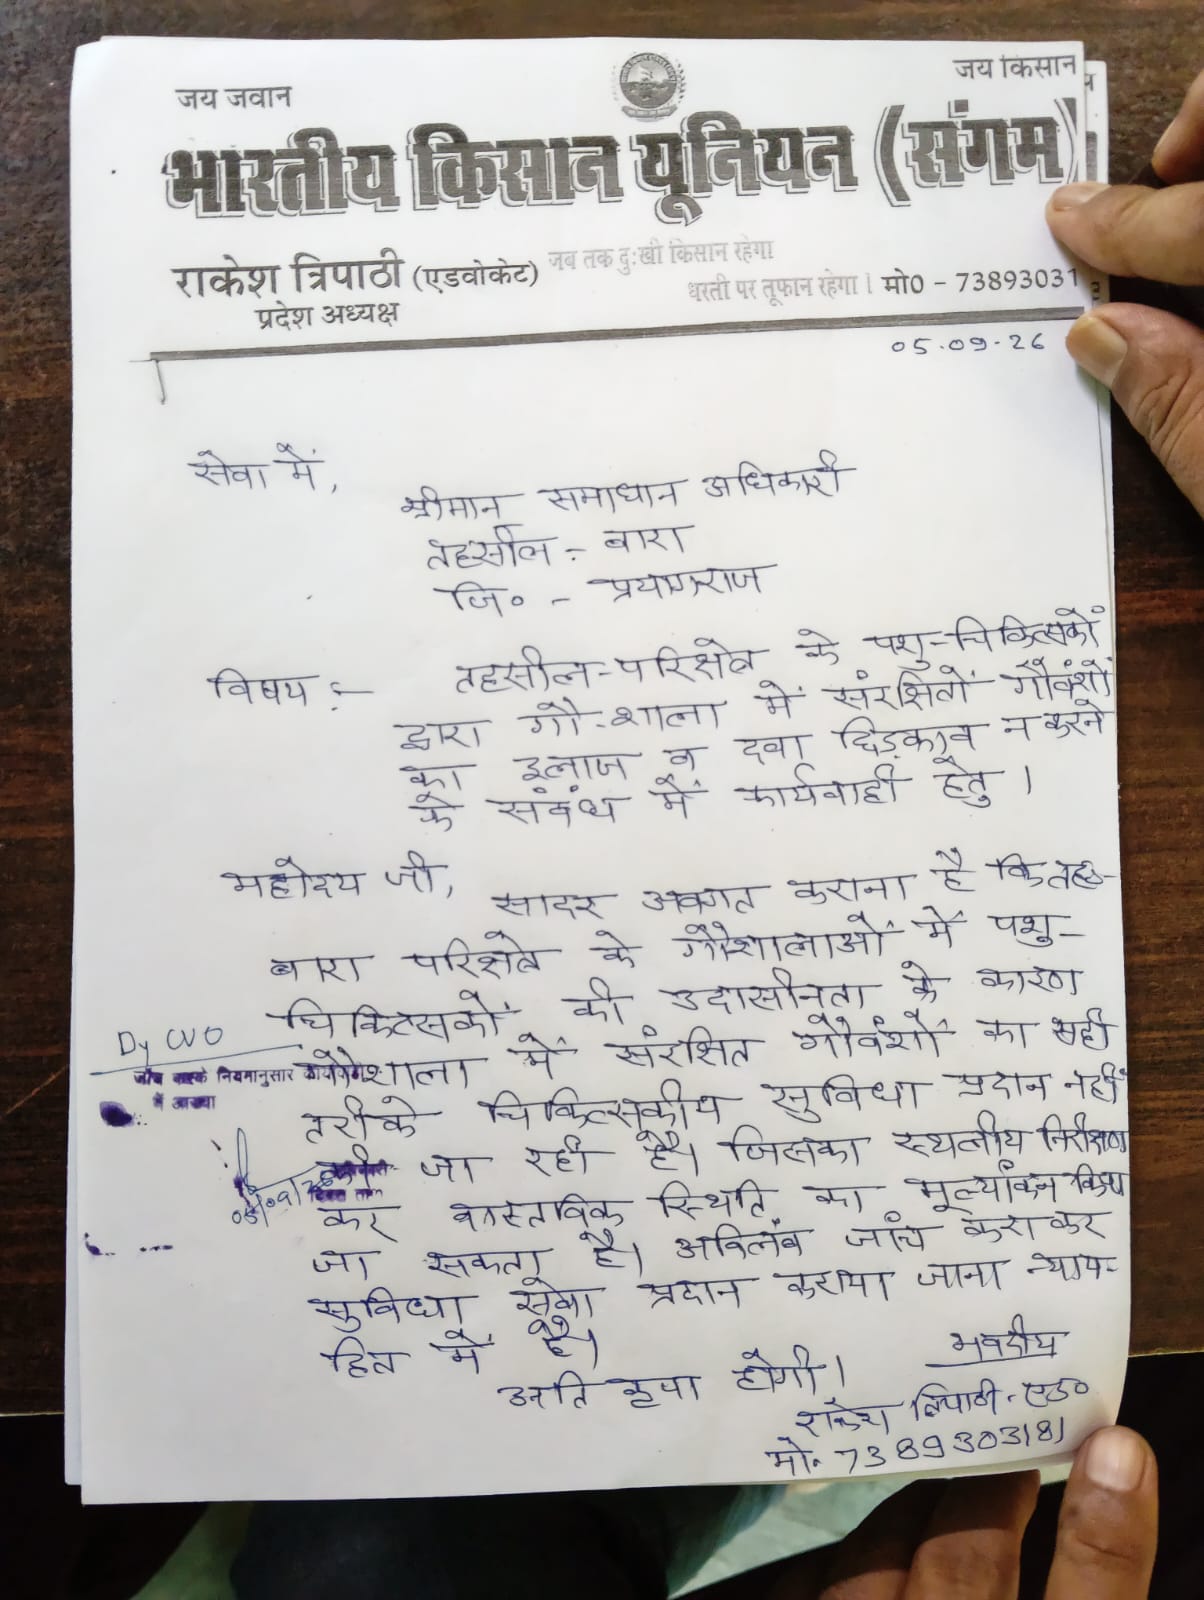 जय जवान
जय किसान
भारतीय किसान यूनियन (संगम)
राकेश त्रिपाठी (एडवोकेट)
प्रदेश अध्यक्ष
जब तक दुःखी किसान रहेगा
धरती पर तूफान रहेगा । मो0 - 73893031
05.09.26
सेवा में,
श्रीमान समाधान अधिकारी
तहसील :- बारा
जि० - प्रयागराज
विषय :- तहसील-परिक्षेत्र के पशु-चिकित्सकों
द्वारा गौ-शाला में संरक्षितों गौवंशों
का इलाज व दवा छिड़काव न करने
के संबंध में कार्यवाही हेतु ।
महोदय जी,
सादर अवगत कराना है कि तह०-
बारा परिक्षेत्र के गौशालाओं में पशु-
चिकित्सकों की उदासीनता के कारण
गौशाला में संरक्षित गौवंशों का सही
तरीके चिकित्सकीय सुविधा प्रदान नहीं
की जा रही है। जिसका स्थलीय निरीक्षण
कर वास्तविक स्थिति का मूल्यांकन किया
जा सकता है। अविलंब जांच करा कर
सुविधा सेवा प्रदान कराया जाना न्याय-
हित में है।
अति कृपा होगी।
भवदीय
राकेश त्रिपाठी - एड०
मो. 7389303181
Dy CVO
जाँच करके नियमानुसार
में आख्या